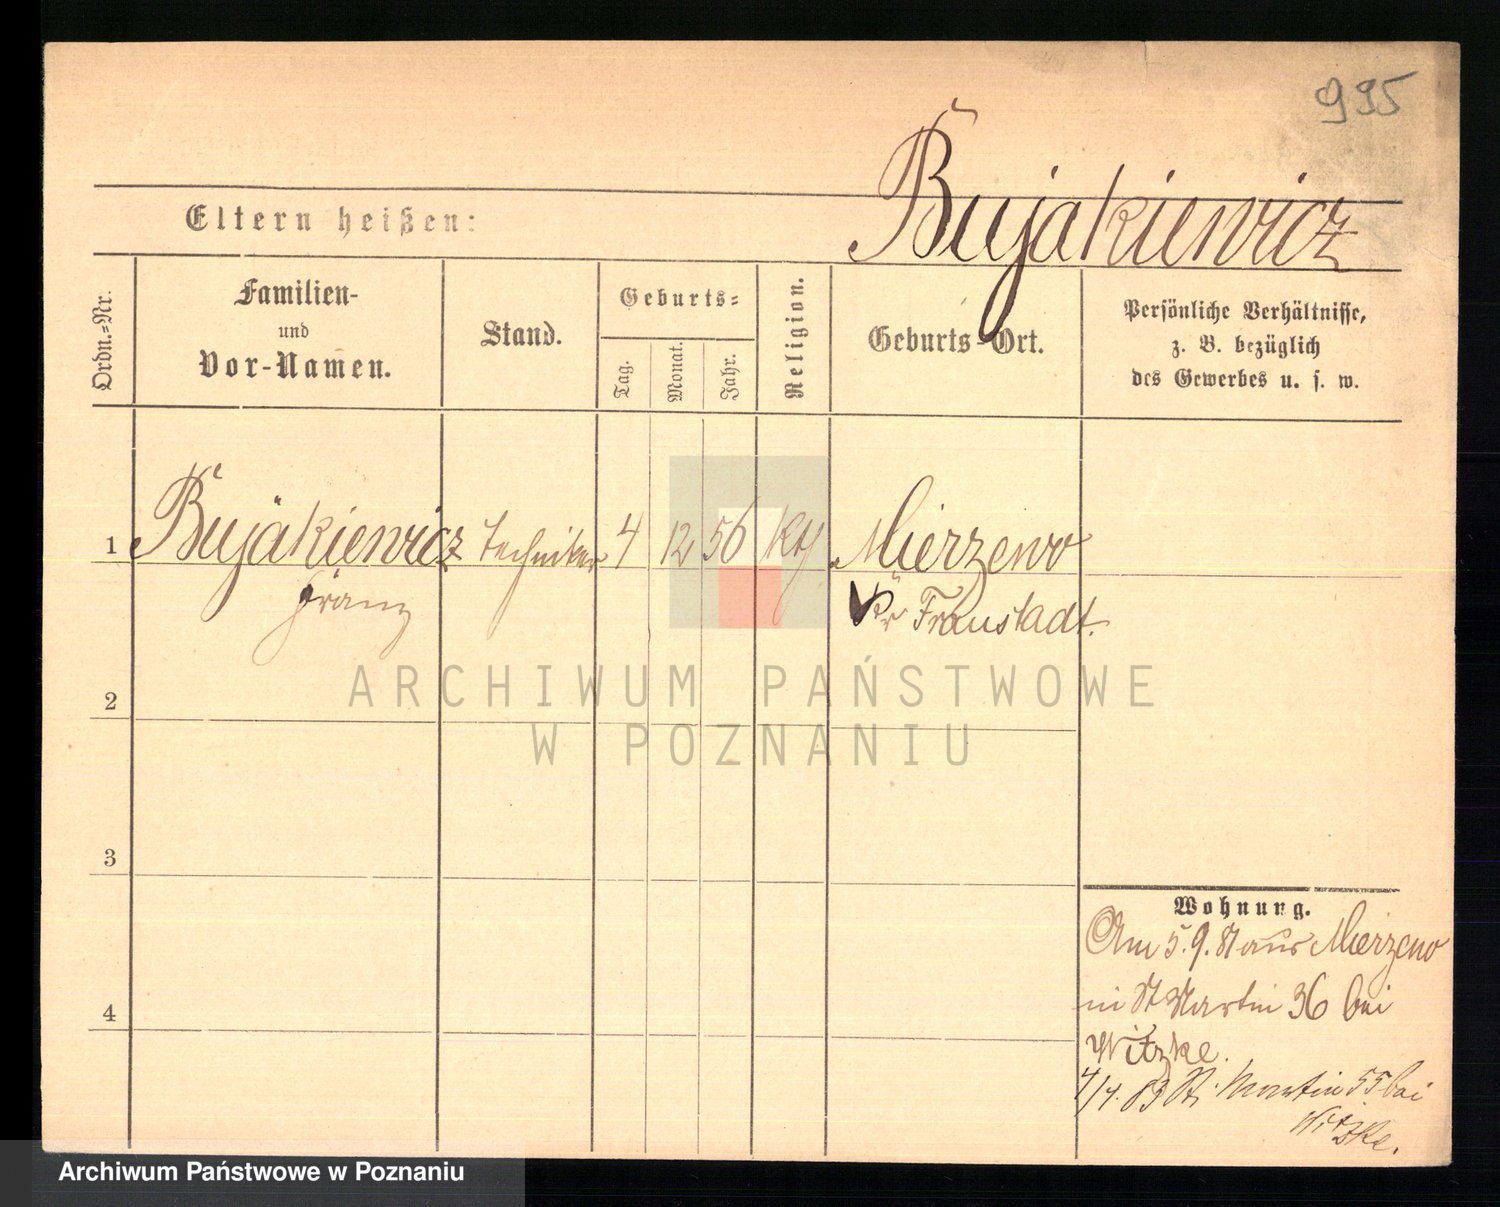 995
Bujakiewicz
Eltern heißen:
Ordn.=Nr.
Familien-
und
Vor-Namen.
Stand.
Geburts=
Tag.
Monat.
Jahr.
Religion.
Geburts-Ort.
Persönliche Verhältnisse,
z. B. bezüglich
des Gewerbes u. s. w.
1 Bujakiewicz Techniker 4 12 56 Kth Mierzewo
Franz Kr Fraustadt.
2
3
4
Wohnung.
Am 5. 9. 81 aus Mierzewo
in St Martin 36 bei
Witzke.
4/4. 83 St. Martin 55 bei
Witzke.
ARCHIWUM PAŃSTWOWE
W POZNANIU
Archiwum Państwowe w Poznaniu